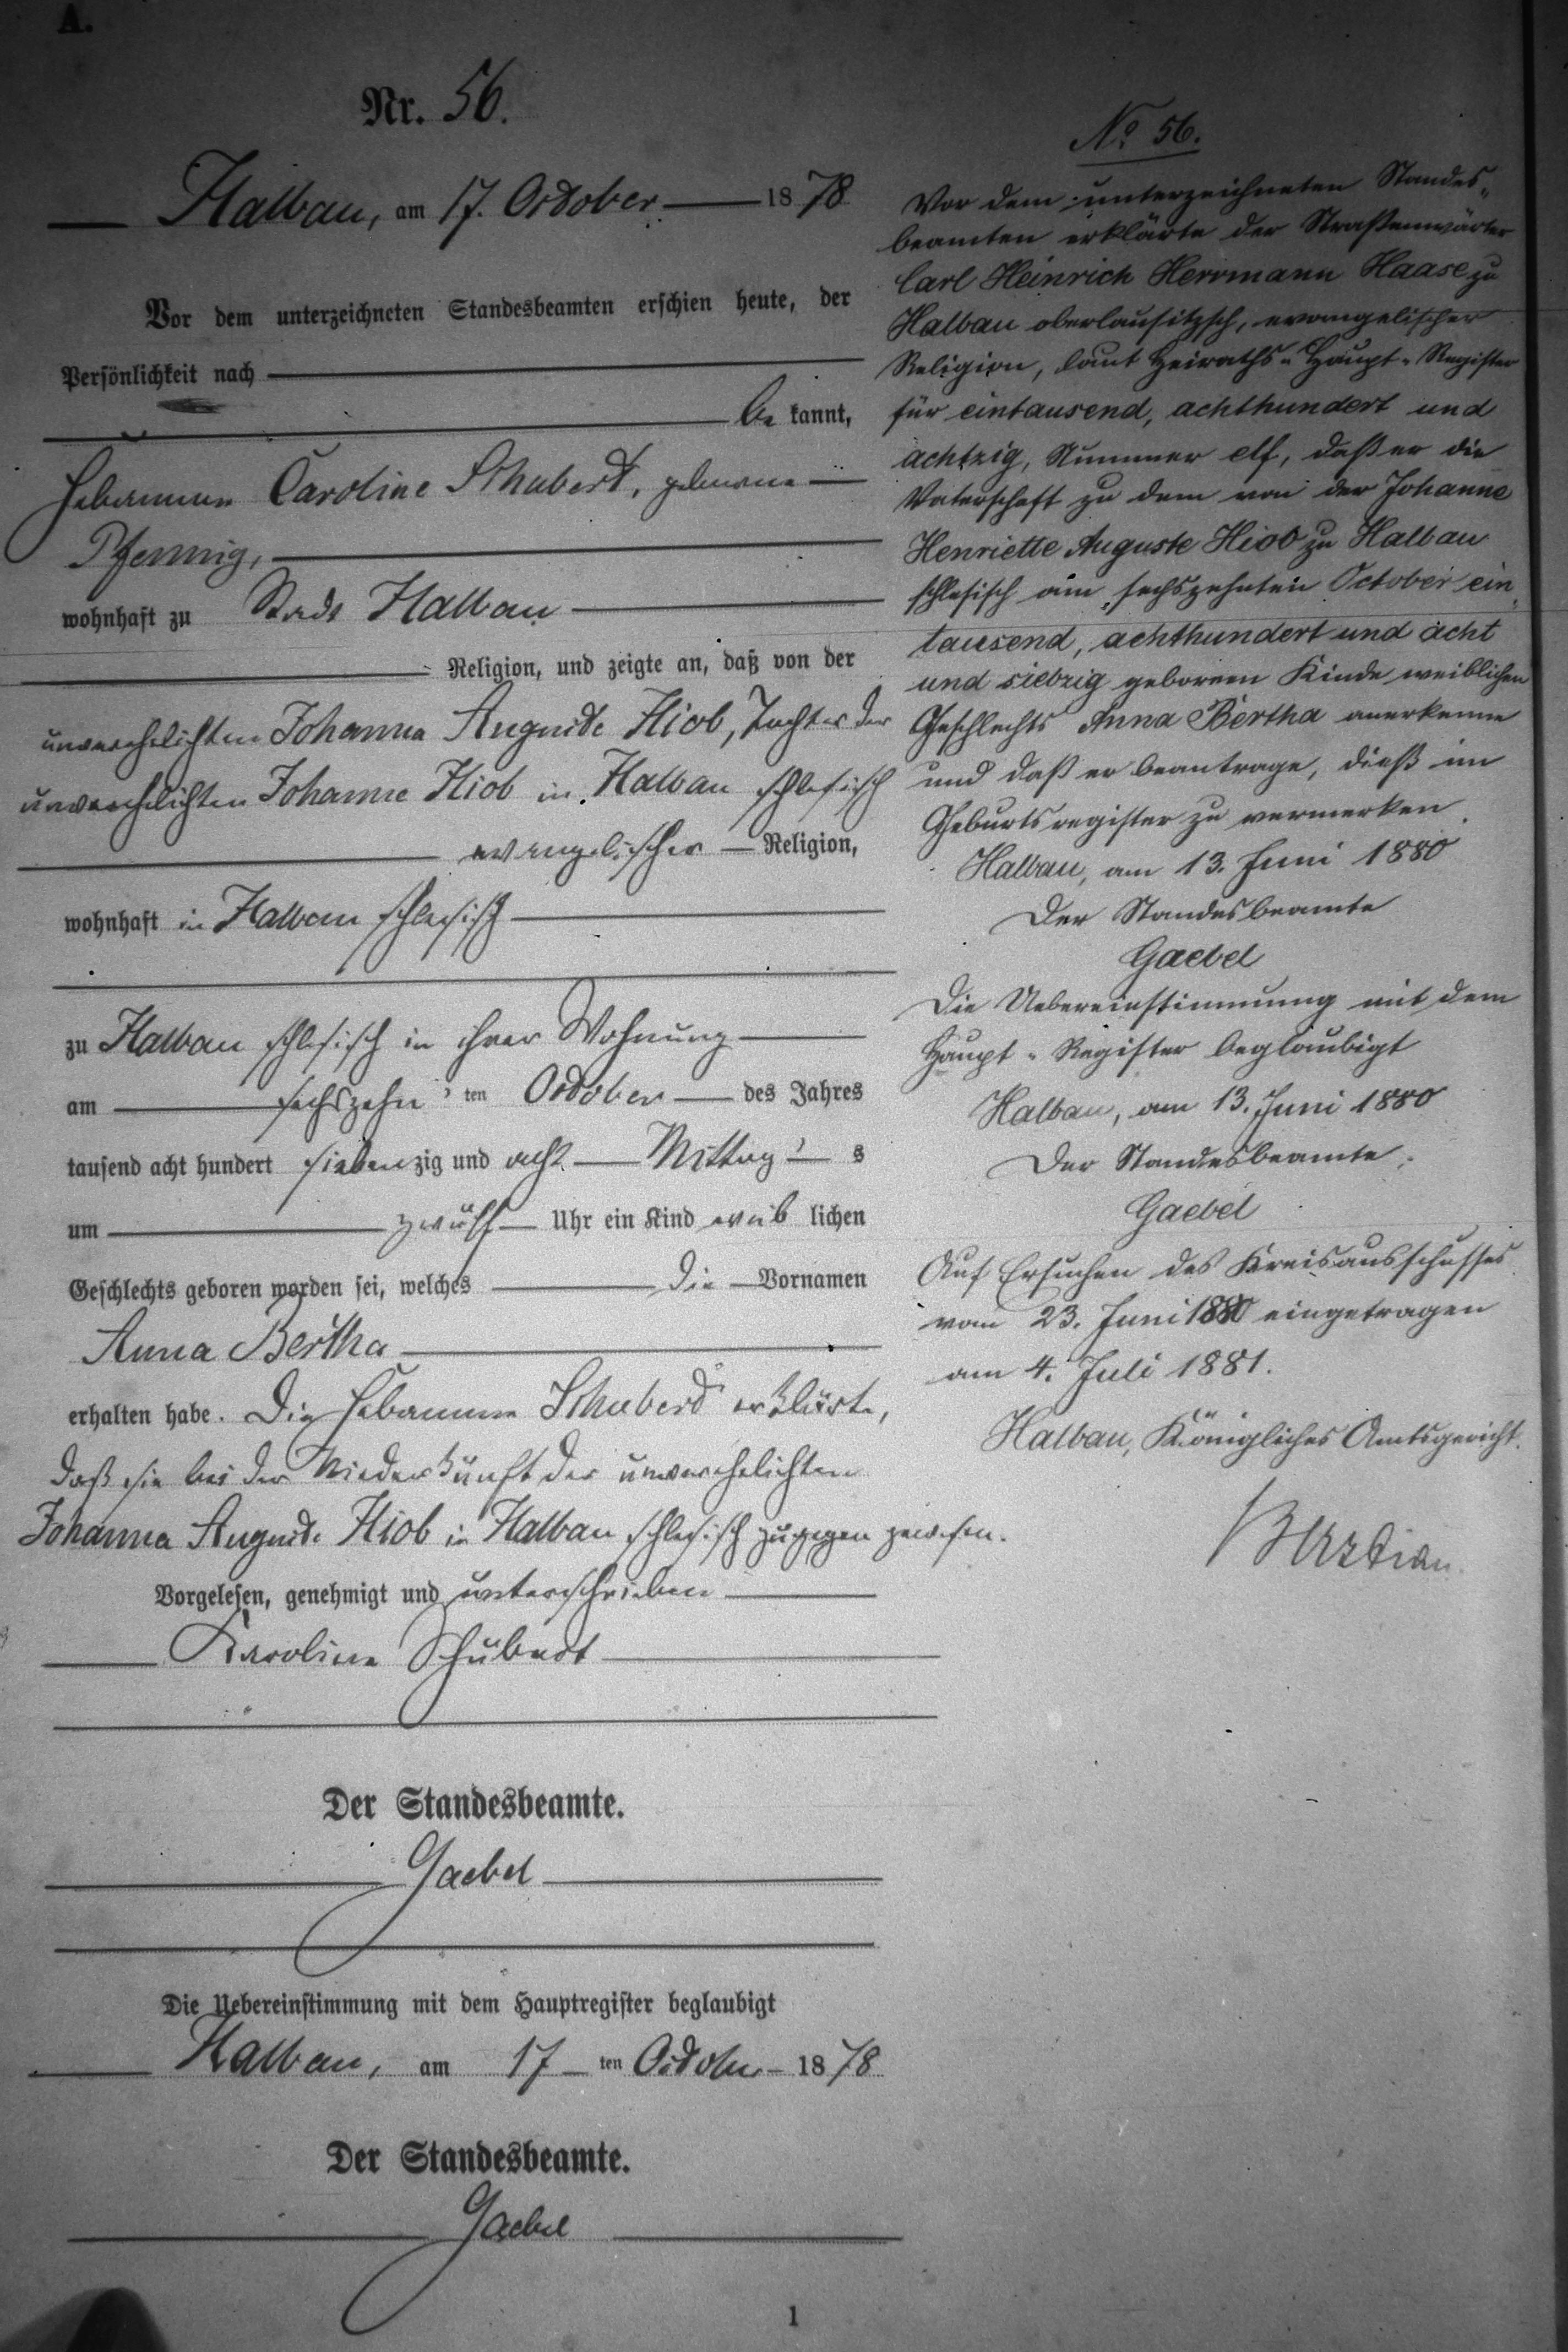 A.
Nr. 56.
Halbau, am 17. October 1878
Vor dem unterzeichneten Standesbeamten erschien heute, der
Persönlichkeit nach
be kannt,
Hebamme Caroline Schubert, geborene
Pfennig,
wohnhaft zu Stadt Halbau
Religion, und zeigte an, daß von der
unverehelichten Johanna Auguste Hiob, Tochter der
unverehelichten Johanne Hiob in Halbau schlesisch
evangelischer Religion,
wohnhaft in Halbau schlesisch
zu Halbau schlesisch in ihrer Wohnung
am sechszehn ten October des Jahres
tausend acht hundert siebenzig und acht Mittags
um zwölf Uhr ein Kind weib lichen
Geschlechts geboren worden sei, welches die Vornamen
Anna Bertha
erhalten habe. Die Hebamme Schubert erklärte,
daß sie bei der Niederkunft der unverehelichten
Johanna Auguste Hiob in Halbau schlesisch zugegen gewesen.
Vorgelesen, genehmigt und unterschrieben
Karoline Schubert
Der Standesbeamte.
Gaebel
Die Uebereinstimmung mit dem Hauptregister beglaubigt
Halbau, am 17 ten October 1878
Der Standesbeamte.
Gaebel
1
No 56.
Vor dem unterzeichneten Standes-
beamten erklärte der Straßenwärter
Carl Heinrich Herrmann Haase zu
Halbau oberlausitzsch, evangelischer
Religion, laut Heiraths-Haupt-Register
für eintausend, achthundert und
achtzig, Nummer elf, daß er die
Vaterschaft zu dem von der Johanne
Henriette Auguste Hiob zu Halbau
schlesisch am sechszehnten October ein-
tausend, achthundert und acht
und siebzig geborenen Kinde weiblichen
Geschlechts Anna Bertha anerkenne
und daß er beantrage, dieß im
Geburtsregister zu vermerken.
Halbau, am 13. Juni 1880
Der Standesbeamte
Gaebel
Die Uebereinstimmung mit dem
Haupt-Register beglaubigt
Halbau, am 13. Juni 1880
Der Standesbeamte.
Gaebel
Auf Ersuchen des Kreisausschusses
vom 23. Juni eingetragen
am 4. Juli 1881.
Halbau, Königliches Amtsgericht.